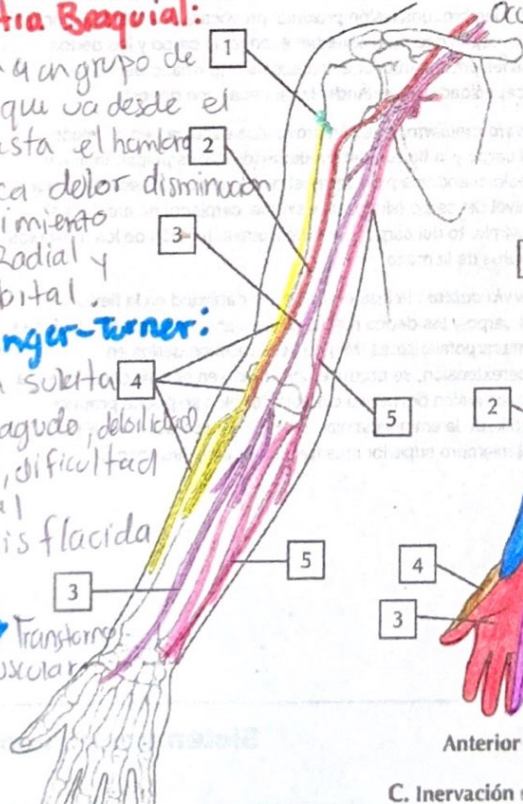 Braquial:
a un grupo de
que va desde el
asta el hombro
ca dolor disminución
imiento
Radial y
bital
nger-Turner:
suelta
aguda, debilidad
, dificultad
al
is flacida
Transtorno
uscular
1
2
3
4
5
3
5
2
4
3
Anterior
C. Inervación